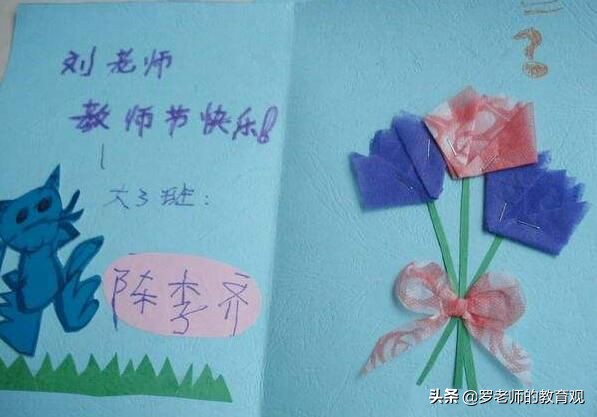 刘老师
教师节快乐!
大3班:
陈李齐
头条 @罗老师的教育观